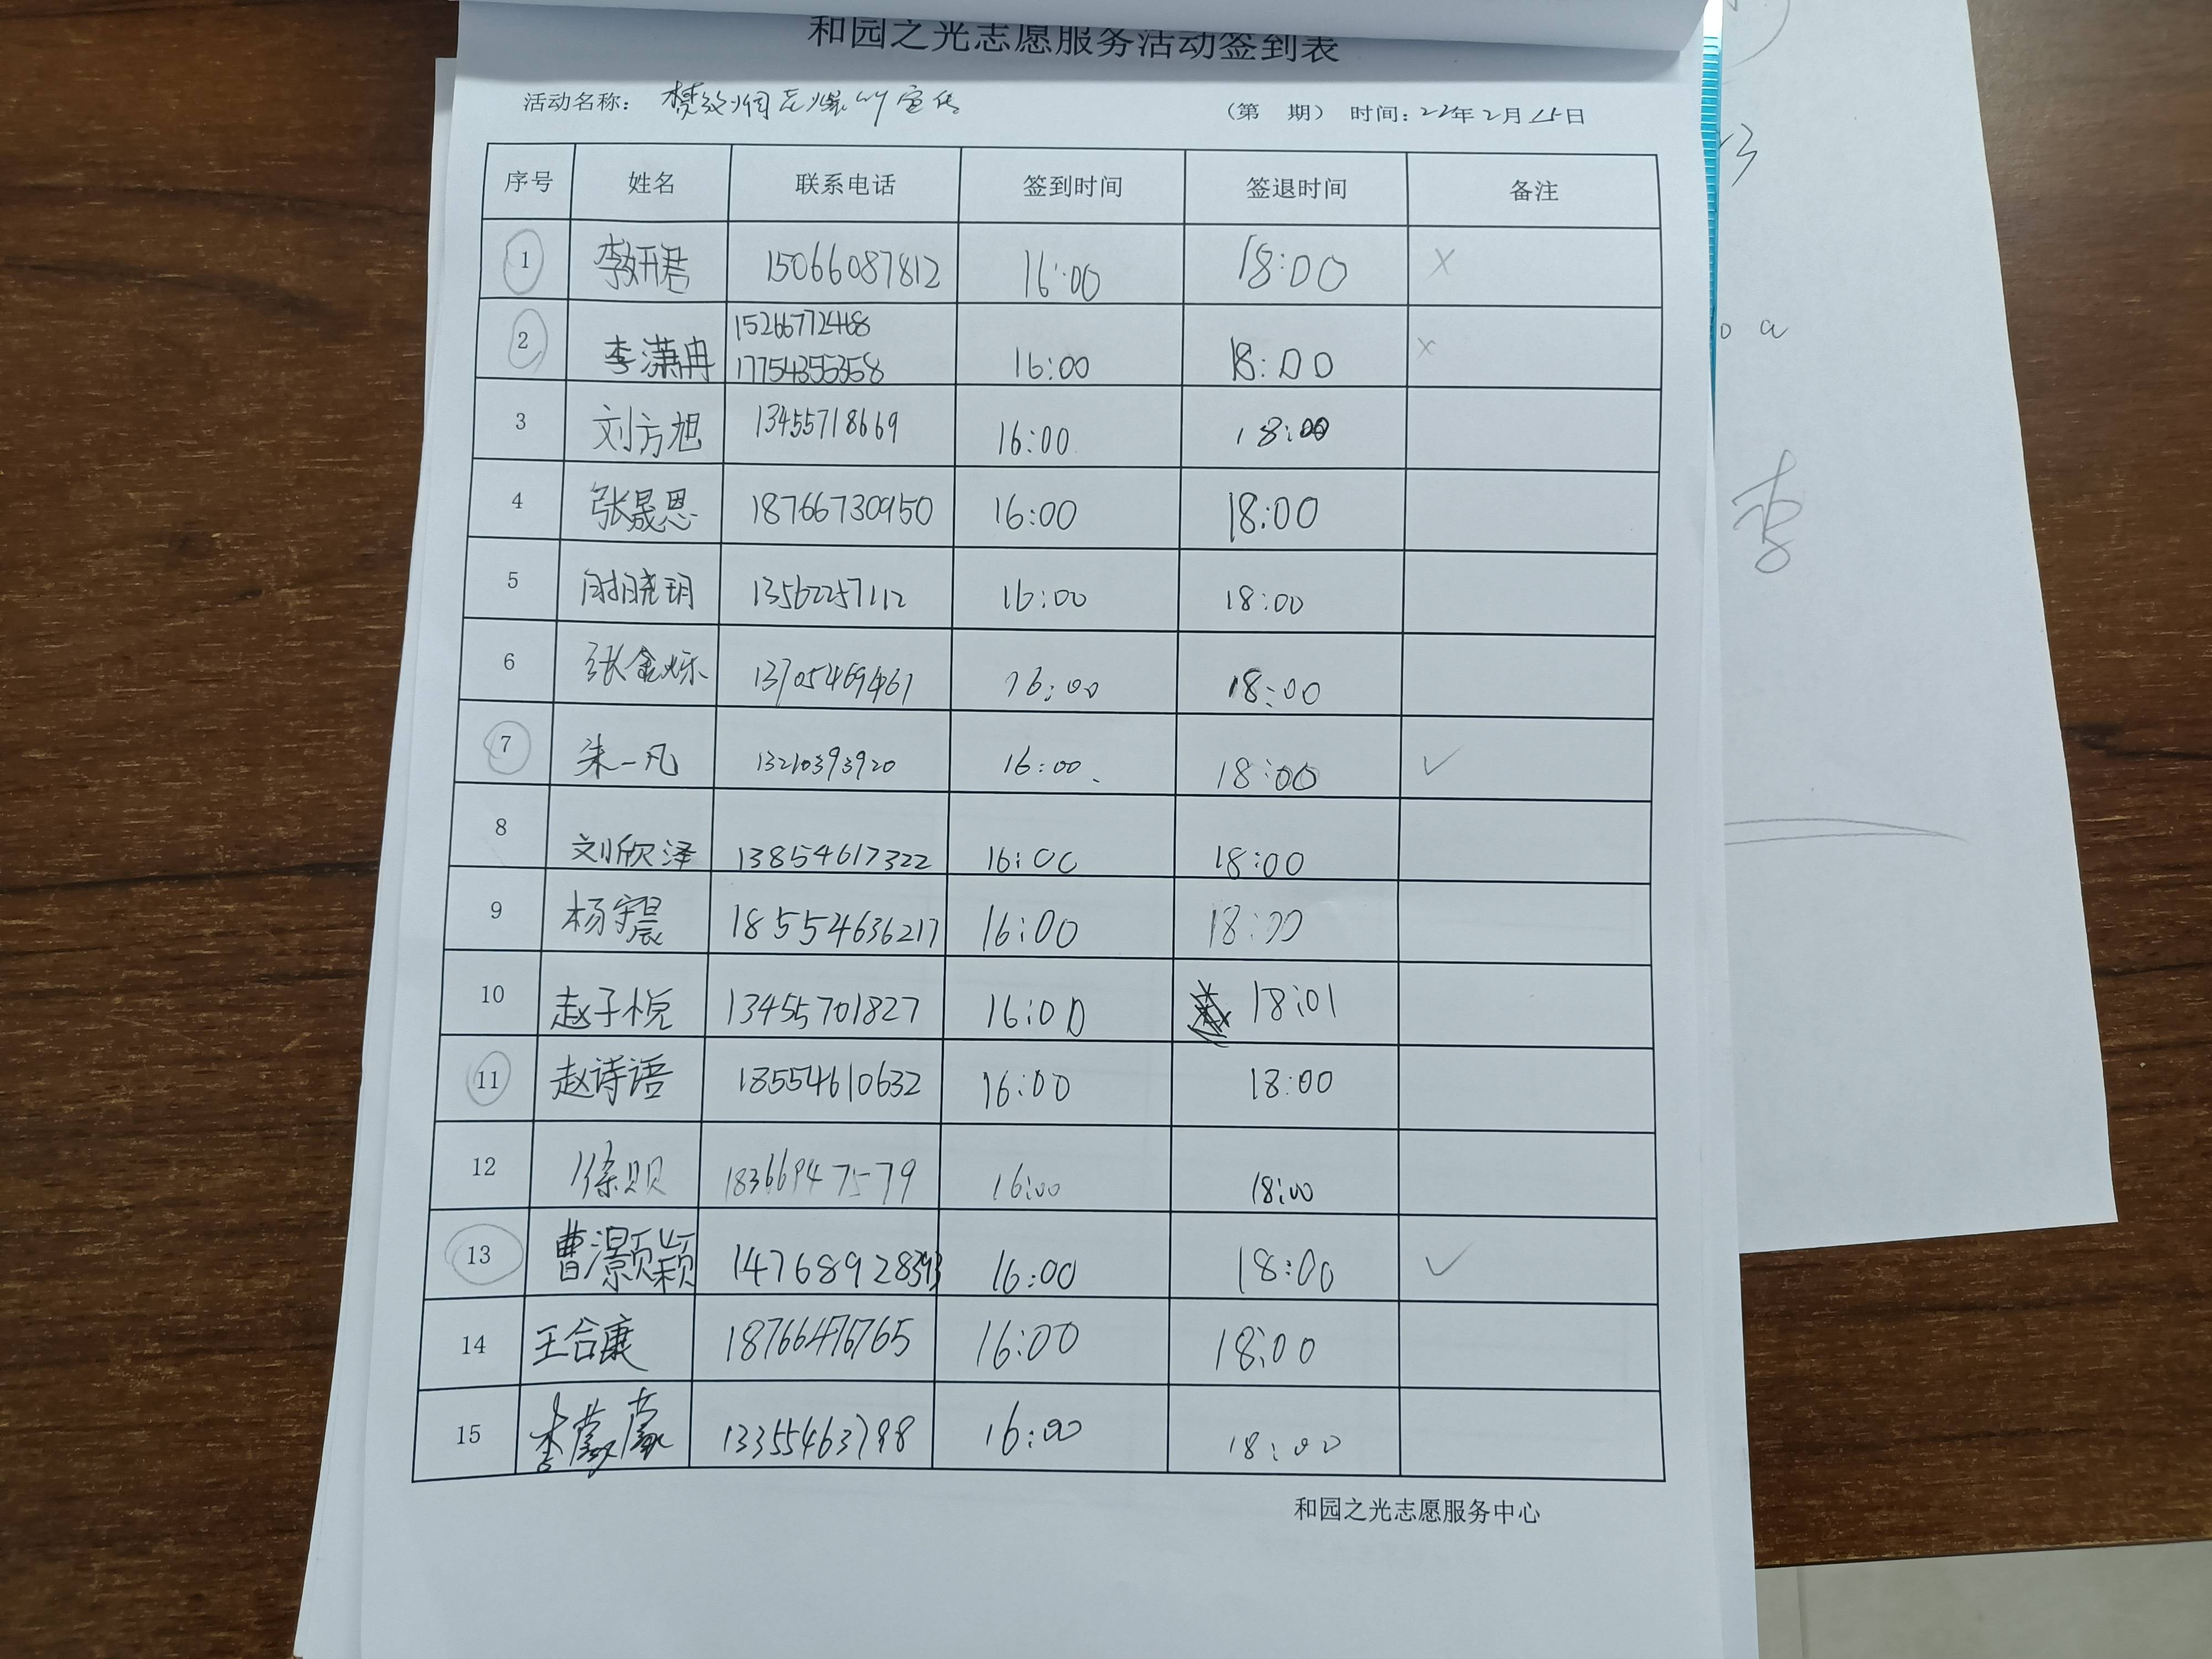 和园之光志愿服务活动签到表
活动名称： 禁放烟花爆竹宣传 （第 期） 时间：22年2月15日
序号 姓名 联系电话 签到时间 签退时间 备注
1 李妍君 15066087812 16:00 18:00 ×
2 李潇冉 15266772468 17754355358 16:00 18:00 ×
3 刘方旭 13455718669 16:00 18:00
4 张晟恩 18766730950 16:00 18:00
5 13562257112 16:00 18:00
6 张金烁 13705469461 16:00 18:00
7 朱一凡 13210393920 16:00 18:00 ✓
8 刘欣泽 13854617322 16:00 18:00
9 杨宇晨 185554636217 16:00 18:00
10 赵子悦 13455701827 16:00 18:01
11 赵诗语 18554610632 16:00 18:00
12 徐贝贝 18366947579 16:00 18:00
13 曹灏颖 16:00 18:00 ✓
14 王合康 18766476765 16:00 18:00
15 李蒙蒙 13355463798 16:00 18:00
和园之光志愿服务中心
李